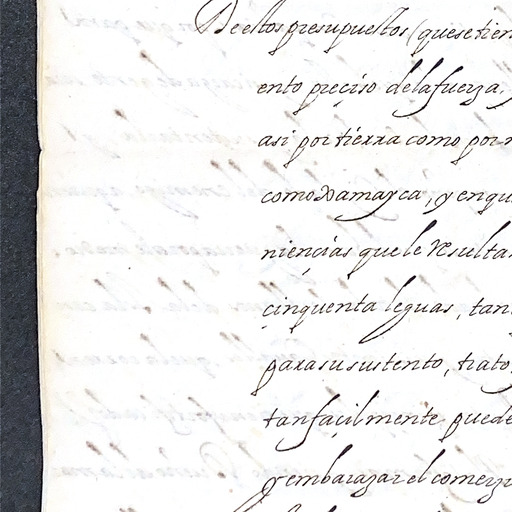 De estos presupuestos (que se tien
ento preciso de la fuerza,
asi por tierra como por m
como Xamayca, y en qu
niencias que le resulta
cinquenta leguas, tan
para su sustento, trato,
tan façilmente puede
y embarazar el comerzi